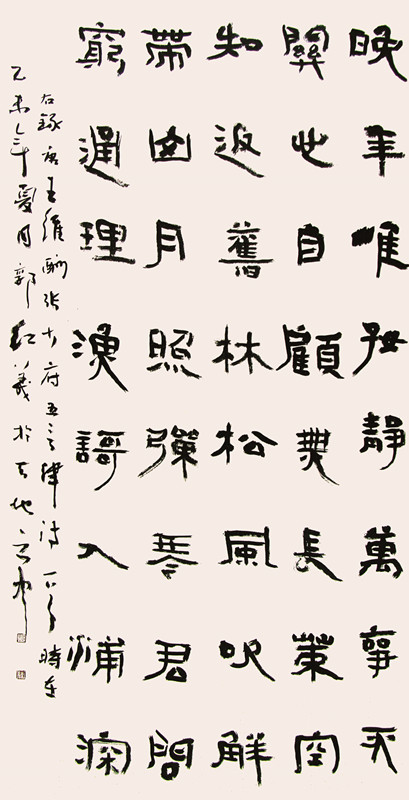 晚年唯好靜萬事不
關心自顧無長策空
知返舊林松風吹解
帶山月照彈琴君問
窮通理漁謌入浦深
右錄唐王維酬張少府五言律詩一首時在
乙未年夏月郭紅義於天地